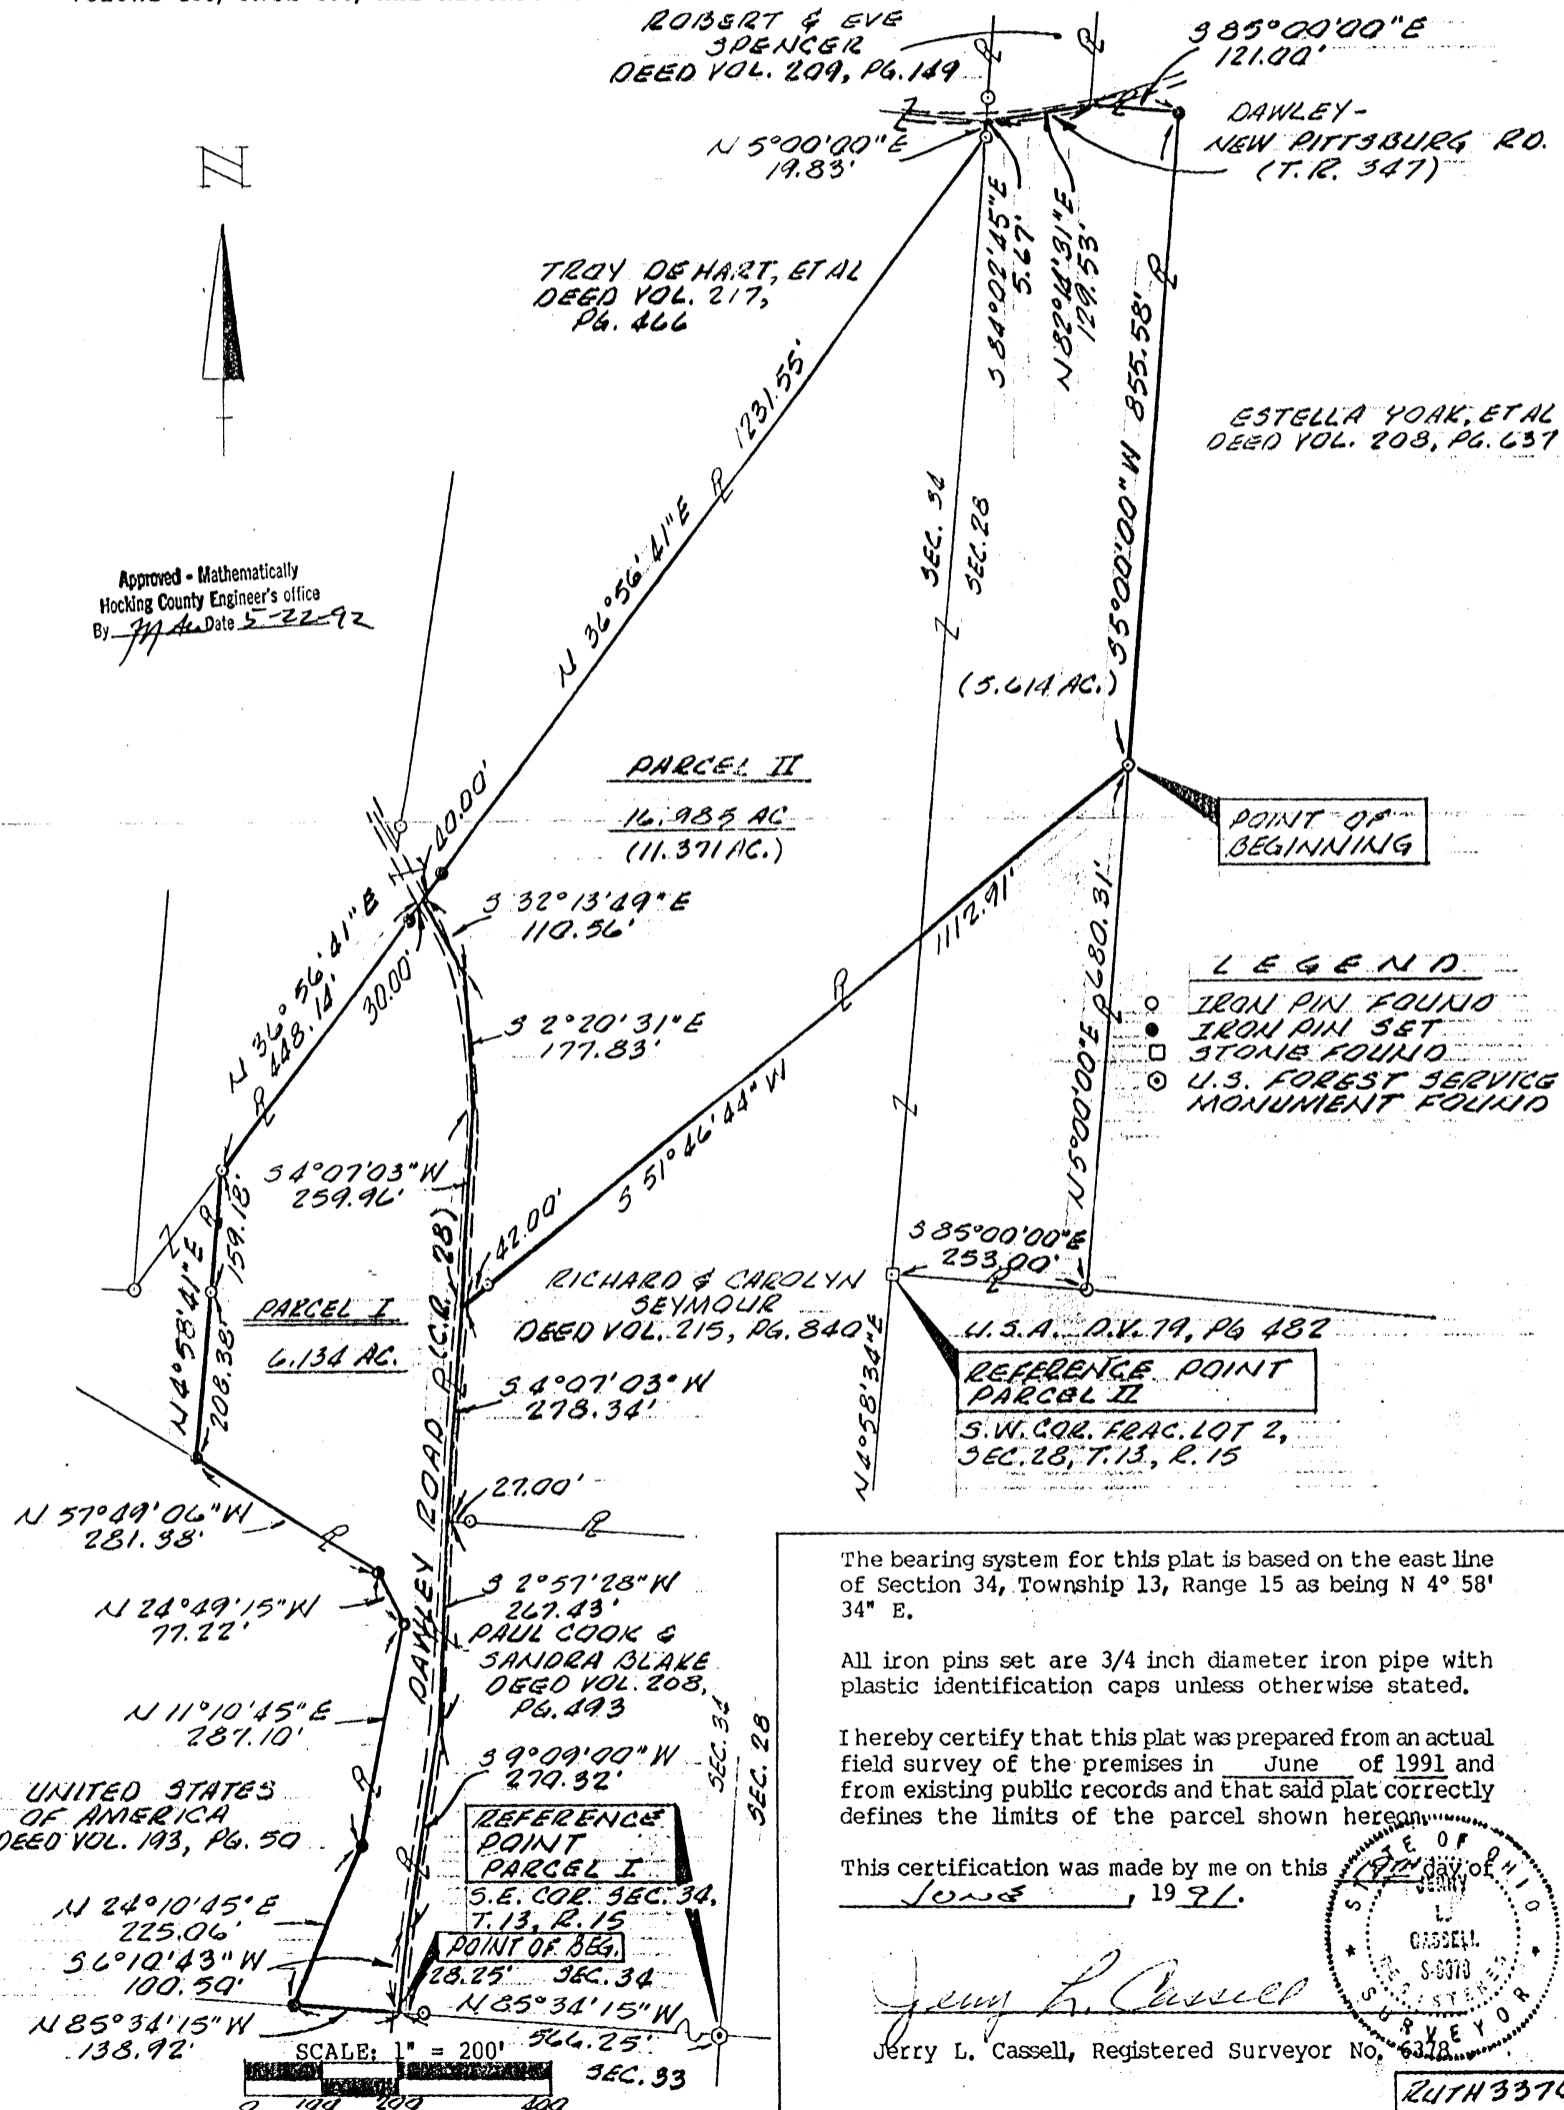 ROBERT & EVE
SPENCER
DEED VOL. 209, PG. 149
S 85°00'00"E
121.00'
DAWLEY-
NEW PITTSBURG RD.
(T.R. 347)
N 5°00'00"E
19.83'
N
S 84°02'45"E
5.67'
N 82°14'31"E
129.53'
TROY DEHART, ET AL
DEED VOL. 217,
PG. 466
1231.55'
N 36°56'41"E
S 5°00'00"W 855.58'
ESTELLA YOAK, ET AL
DEED VOL. 208, PG. 637
SEC. 34
SEC. 28
Approved - Mathematically
Hocking County Engineer's office
By Date 5-22-92
(5.614 AC.)
PARCEL II
16.985 AC
(11.371 AC.)
40.00'
POINT OF
BEGINNING
S 32°13'49"E
110.56'
N 36°56'41"E
448.14'
30.00'
1112.91'
S 51°46'44"W
N 5°00'00"E 680.31'
LEGEND
IRON PIN FOUND
IRON PIN SET
STONE FOUND
U.S. FOREST SERVICE
MONUMENT FOUND
S 2°20'31"E
177.83'
S 4°07'03"W
259.96'
159.18'
N 4°58'41"E
208.38'
42.00'
S 85°00'00"E
253.00'
PARCEL I
6.134 AC.
RICHARD & CAROLYN
SEYMOUR
DEED VOL. 215, PG. 840
U.S.A. D.V. 79, PG 482
REFERENCE POINT
PARCEL II
S.W. COR. FRAC. LOT 2,
SEC. 28, T.13, R.15
N 4°58'34"E
S 4°07'03"W
278.34'
DAWLEY ROAD (C.R. 28)
27.00'
N 57°49'06"W
281.38'
N 24°49'15"W
77.22'
S 2°57'28"W
267.43'
PAUL COOK &
SANDRA BLAKE
DEED VOL. 208,
PG. 493
N 11°10'45"E
287.10'
SEC. 34
SEC. 28
S 9°09'00"W
279.32'
UNITED STATES
OF AMERICA
DEED VOL. 193, PG. 50
REFERENCE
POINT
PARCEL I
S.E. COR. SEC. 34,
T.13, R.15
POINT OF BEG.
N 24°10'45"E
225.06'
S 6°10'43"W
100.50'
28.25' SEC. 34
N 85°34'15"W
566.25'
SEC. 33
N 85°34'15"W
138.92'
SCALE: 1" = 200'
0 100 200 400
The bearing system for this plat is based on the east line
of Section 34, Township 13, Range 15 as being N 4° 58'
34" E.
All iron pins set are 3/4 inch diameter iron pipe with
plastic identification caps unless otherwise stated.
I hereby certify that this plat was prepared from an actual
field survey of the premises in June of 1991 and
from existing public records and that said plat correctly
defines the limits of the parcel shown hereon.
This certification was made by me on this 19TH day of
JUNE, 1991.
STATE OF OHIO
JERRY
L.
CASSELL
S-6378
REGISTERED
SURVEYOR
Jerry L. Cassell
Jerry L. Cassell, Registered Surveyor No. 6378